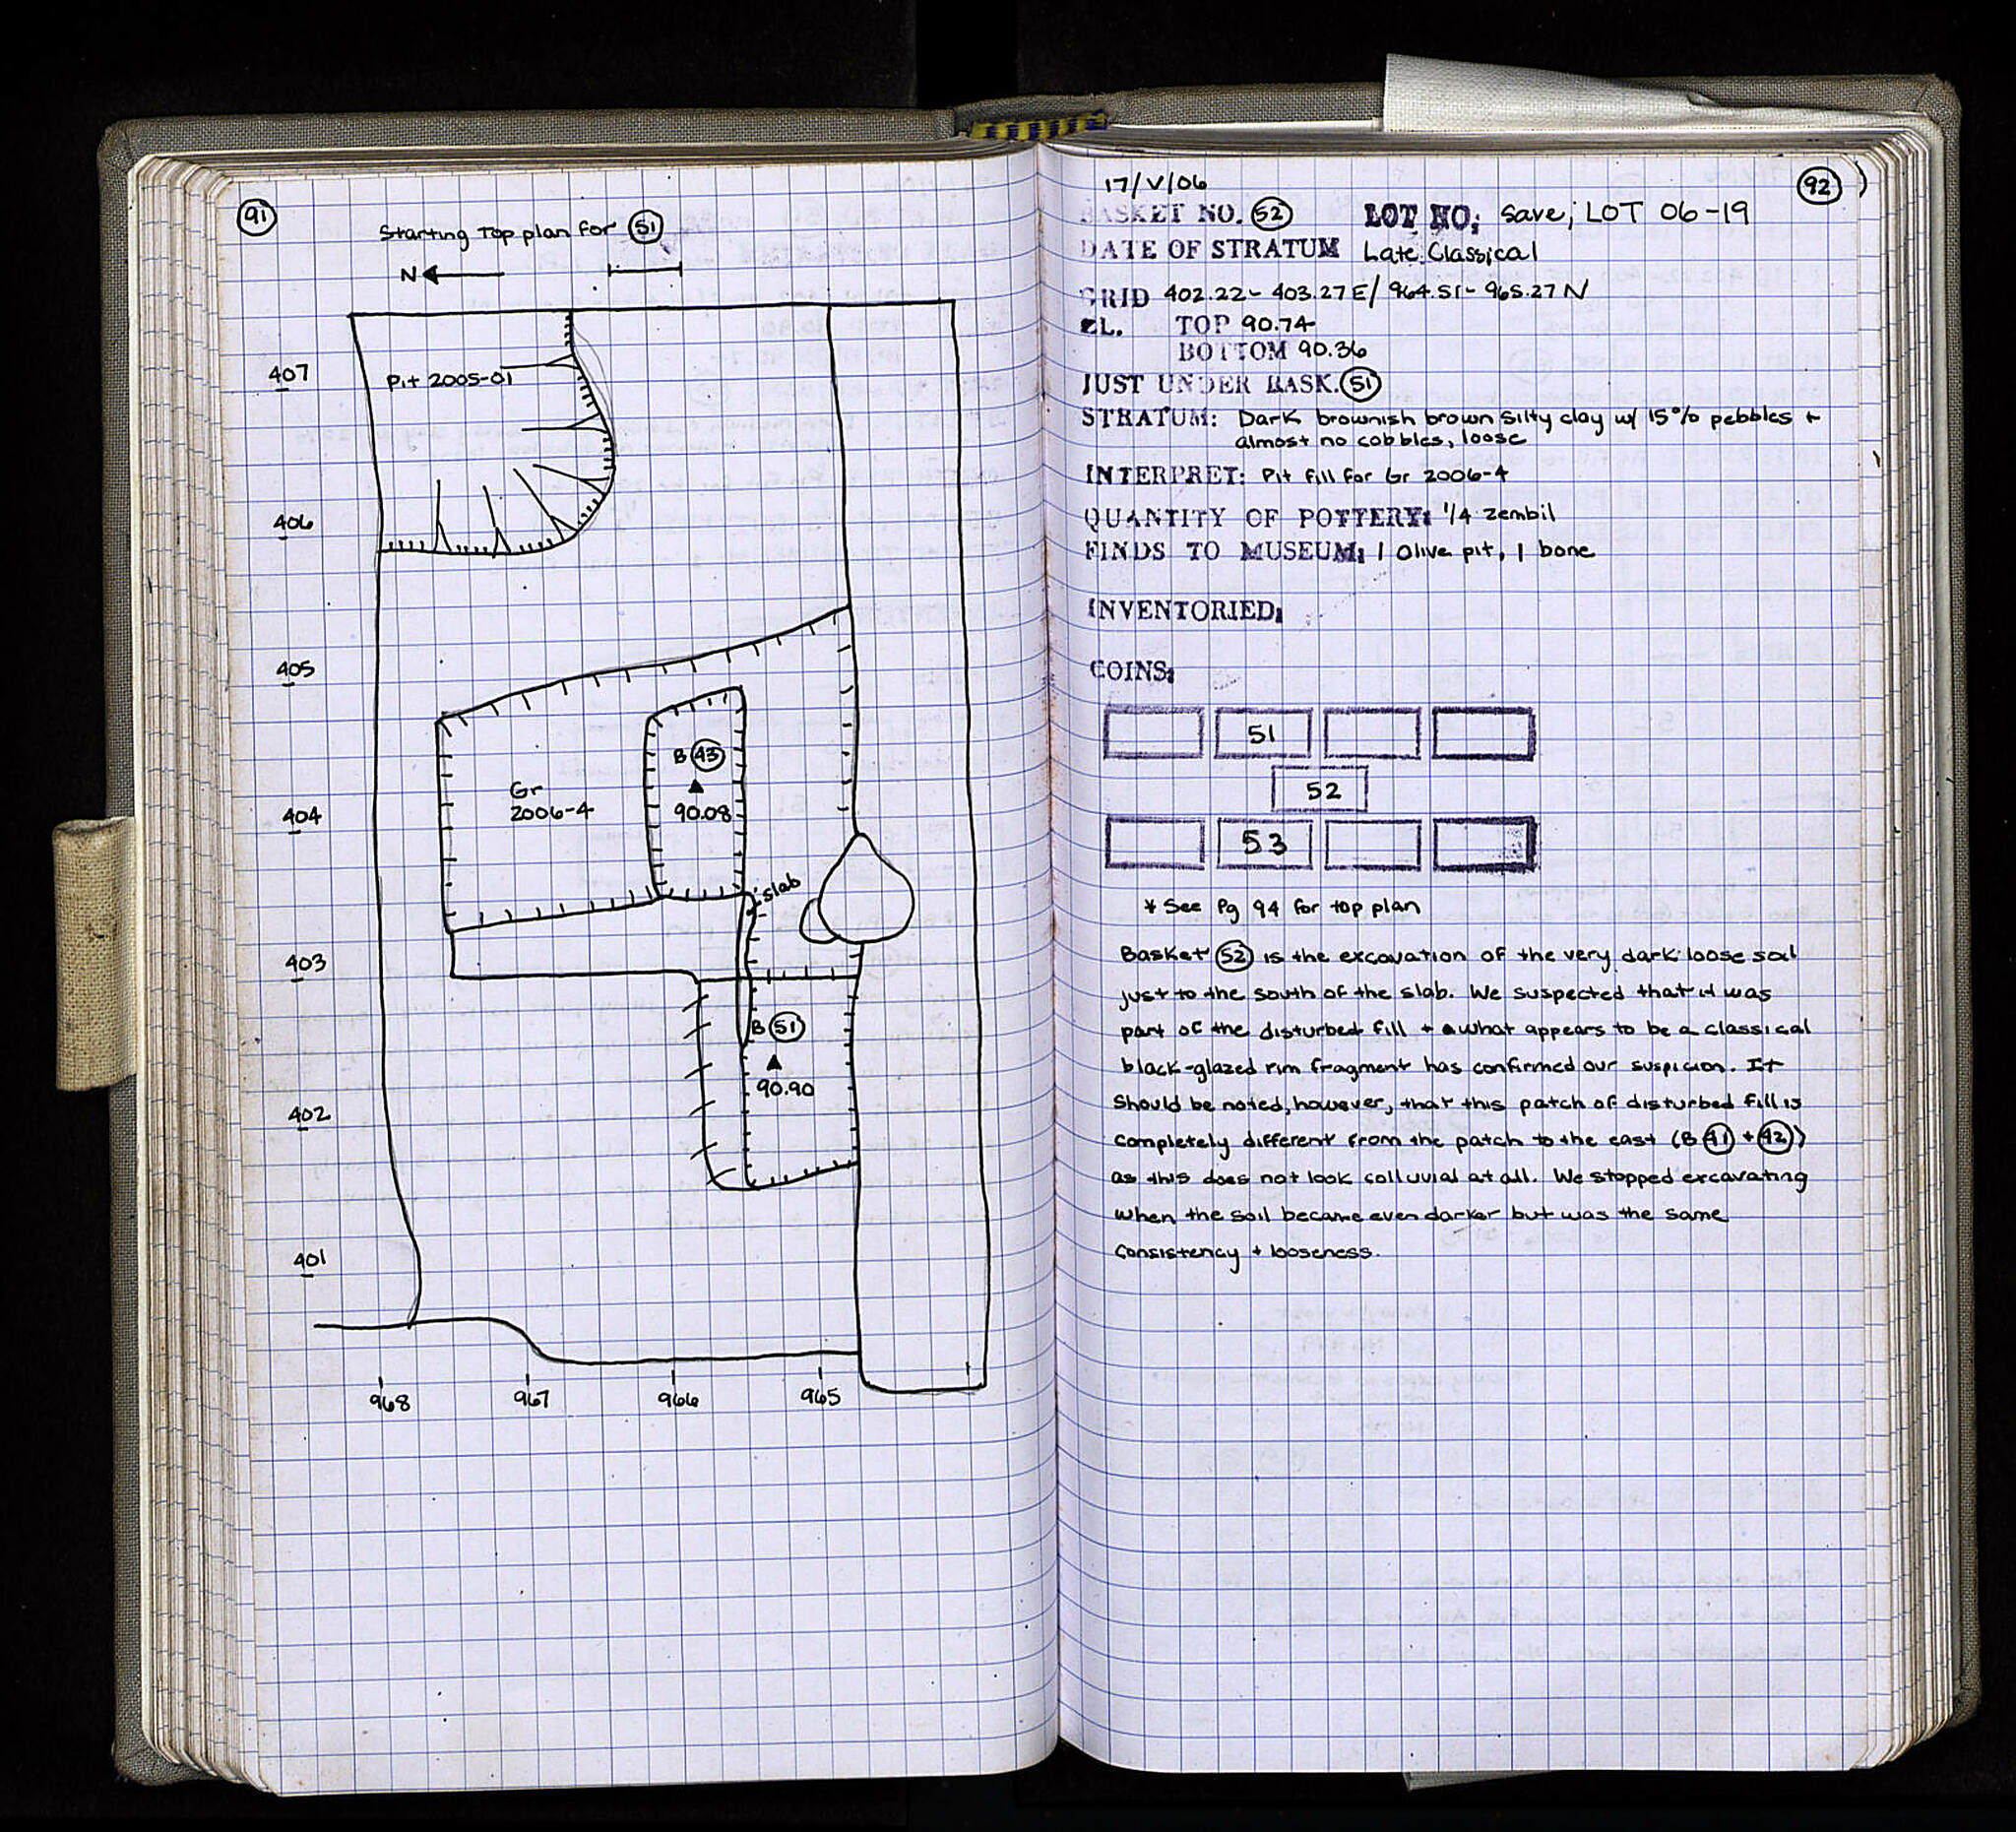 91
Starting Top plan for 51
N
407
Pit 2005-01
406
405
B 43
90.08
Gr
2006-4
404
slab
403
B 51
90.90
402
401
968 967 966 965
92
17/V/06
BASKET NO. 52 LOT NO: save; LOT 06-19
DATE OF STRATUM Late Classical
GRID 402.22- 403.27 E/ 964.51- 965.27 N
EL. TOP 90.74
BOTTOM 90.36
JUST UNDER BASK. 51
STRATUM: Dark brownish brown silty clay w/ 15% pebbles +
almost no cobbles, loose
INTERPRET: Pit fill for Gr 2006-4
QUANTITY OF POTTERY: 1/4 zembil
FINDS TO MUSEUM: 1 Olive pit, 1 bone
INVENTORIED:
COINS:
51
52
53
* See pg 94 for top plan
Basket 52 is the excavation of the very dark loose soil
just to the south of the slab. We suspected that it was
part of the disturbed fill + what appears to be a classical
black-glazed rim fragment has confirmed our suspicion. It
should be noted, however, that this patch of disturbed fill is
completely different from the patch to the east (B 41 + 42)
as this does not look colluvial at all. We stopped excavating
when the soil became even darker but was the same
consistency + looseness.